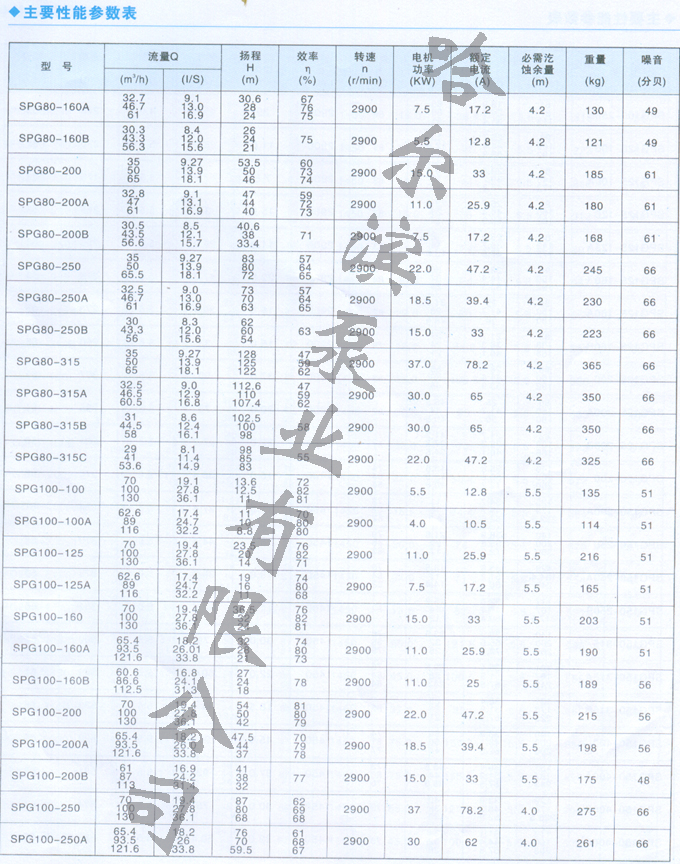 ◆主要性能参数表
型 号 流量Q 扬程 H (m) 效率 η (%) 转速 n (r/min) 电机功率 (KW) 额定电流 (A) 必需汔蚀余量 (m) 重量 (kg) 噪音 (分贝)
(m³/h) (l/S)
SPG80-160A 32.7 46.7 61 9.1 13.0 16.9 30.6 28 24 67 76 75 2900 7.5 17.2 4.2 130 49
SPG80-160B 30.3 43.3 56.3 8.4 12.0 15.6 26 24 21 75 2900 5.5 12.8 4.2 121 49
SPG80-200 35 50 65 9.27 13.9 18.1 53.5 50 46 60 73 74 2900 15.0 33 4.2 185 61
SPG80-200A 32.8 47 61 9.1 13.1 16.9 47 44 40 59 72 73 2900 11.0 25.9 4.2 180 61
SPG80-200B 30.5 43.5 56.6 8.5 12.1 15.7 40.6 38 33.4 71 2900 7.5 17.2 4.2 168 61
SPG80-250 35 50 65.5 9.27 13.9 18.1 83 80 72 57 64 65 2900 22.0 47.2 4.2 245 66
SPG80-250A 32.5 46.7 61 9.0 13.0 16.9 73 70 63 57 64 65 2900 18.5 39.4 4.2 230 66
SPG80-250B 30 43.3 56 8.3 12.0 15.6 62 60 54 63 2900 15.0 33 4.2 223 66
SPG80-315 35 50 65 9.27 13.9 18.1 128 125 122 47 59 62 2900 37.0 78.2 4.2 365 66
SPG80-315A 32.5 46.5 60.5 9.0 12.9 16.8 112.6 110 107.4 47 59 62 2900 30.0 65 4.2 350 66
SPG80-315B 31 44.5 58 8.6 12.4 16.1 102.5 100 98 58 2900 30.0 65 4.2 350 66
SPG80-315C 29 41 53.6 8.1 11.4 14.9 98 85 83 55 2900 22.0 47.2 4.2 325 66
SPG100-100 70 100 130 19.1 27.8 36.1 13.6 12.5 11 72 82 81 2900 5.5 12.8 5.5 135 51
SPG100-100A 62.6 89 116 17.4 24.7 32.2 11 10 8.8 70 80 80 2900 4.0 10.5 5.5 114 51
SPG100-125 70 100 130 19.4 27.8 36.1 23.5 20 14 76 82 71 2900 11.0 25.9 5.5 216 51
SPG100-125A 62.6 89 116 17.4 24.7 32.2 19 16 11 74 80 68 2900 7.5 17.2 5.5 165 51
SPG100-160 70 100 130 19.4 27.8 36.1 36.5 32 24 76 82 81 2900 15.0 33 5.5 203 51
SPG100-160A 65.4 93.5 121.6 18.2 26.01 33.8 32 28 21 74 80 73 2900 11.0 25.9 5.5 190 51
SPG100-160B 60.6 86.6 112.5 16.8 24.1 31.3 27 24 18 78 2900 11.0 25 5.5 189 56
SPG100-200 70 100 130 19.4 27.8 36.1 54 50 42 81 80 79 2900 22.0 47.2 5.5 215 56
SPG100-200A 65.4 93.5 121.6 18.2 26.0 33.8 47.5 44 37 70 79 78 2900 18.5 39.4 5.5 198 56
SPG100-200B 61 87 113 16.9 24.2 31.4 41 38 32 77 2900 15.0 33 5.5 175 48
SPG100-250 70 100 130 19.4 27.8 36.1 87 80 68 62 69 68 2900 37 78.2 4.0 275 66
SPG100-250A 65.4 93.5 121.6 18.2 26 33.8 76 70 59.5 61 68 67 2900 30 62 4.0 261 66
哈尔滨泵业有限公司